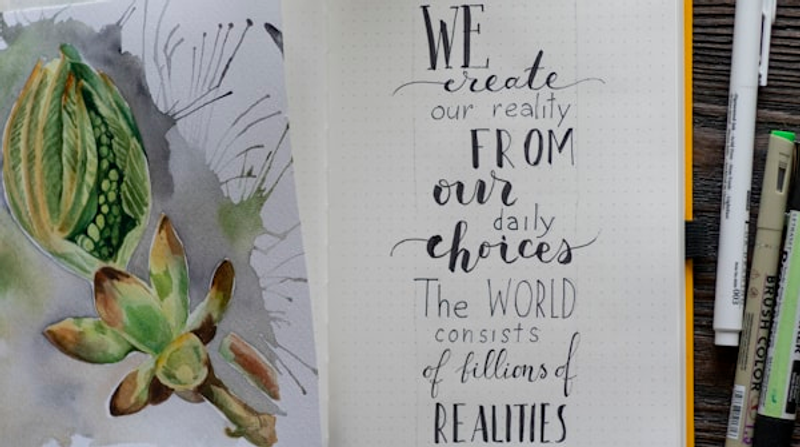 WE
create
our reality
FROM
our
daily
choices
The WORLD
consists
of billions of
REALITIES
003
BRUSH COLOR